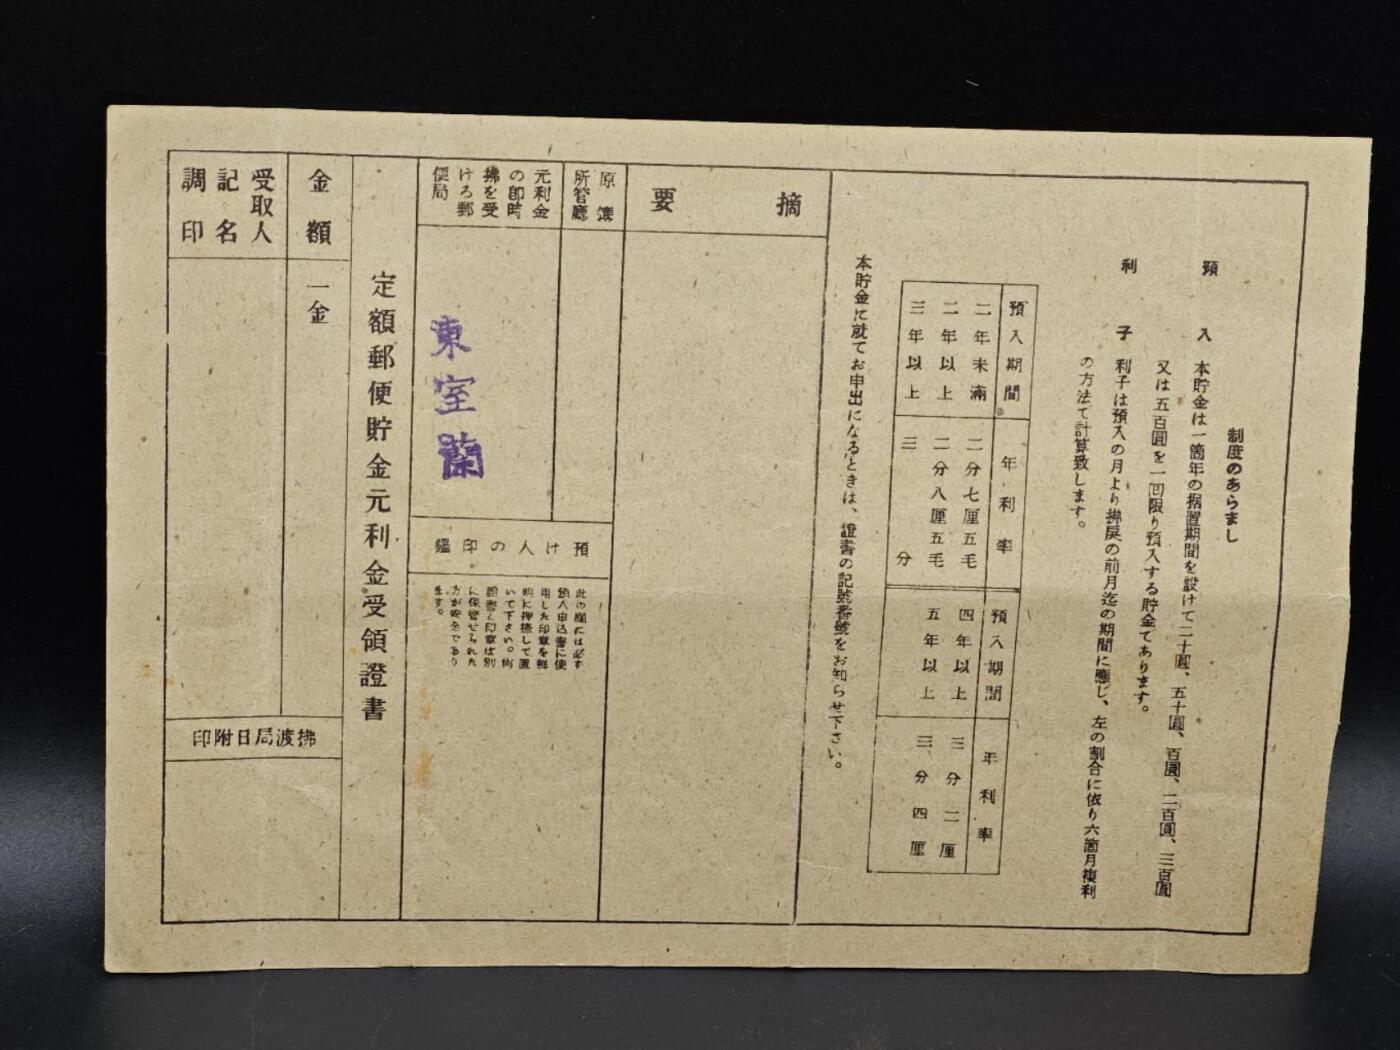 制度のあらまし
預入 本貯金は一箇年の据置期間を設けて二十圓、五十圓、百圓、二百圓、三百圓
又は五百圓を一回限り預入する貯金てあります。
利子 利子は預入の月より拂戻の前月迄の期間に應じ、左の割合に依り六箇月複利
の方法て計算致します。
預入期間 年利率 預入期間 年利率
二年未滿 二分七厘五毛 四年以上 三分二厘
二年以上 二分八厘五毛 五年以上 三分四厘
三年以上 三分
本貯金に就てお申出になるときは、證書の記號番號をお知らせ下さい。
摘要
原簿
所管廳
元利金
の卽時
拂を受
ける郵
便局
東室蘭
預け人の印鑑
此の欄には必す
預入申込書に使
用した印章を鮮
明に押捺して置
いて下さい。尚
證書と印章は別
に保管せられた
方が安全であり
ます。
定額郵便貯金元利金受領證書
金額
一金
受取人
記名
調印
拂渡局日附印